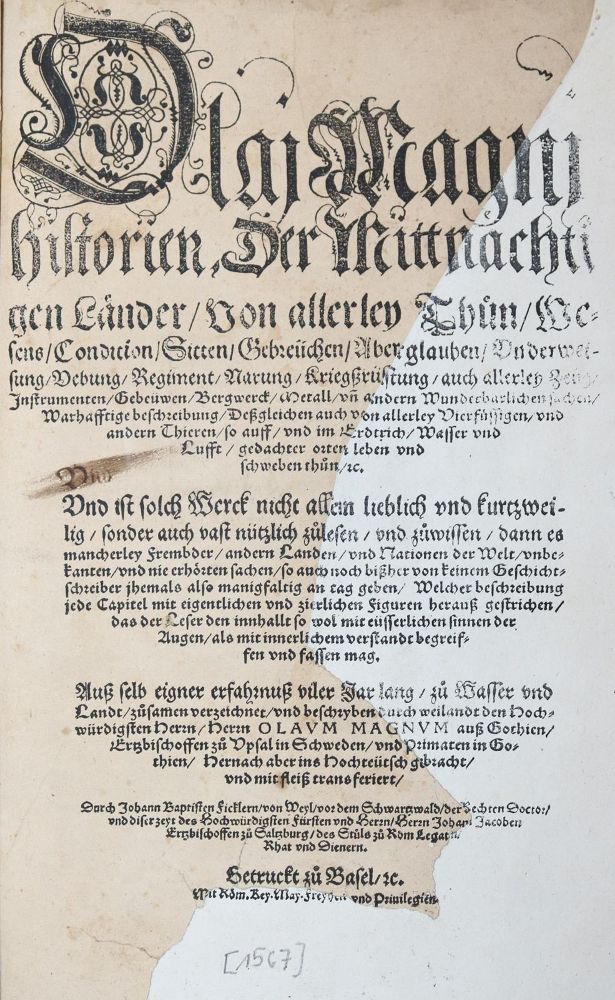 Olaj Magnj
Historien, Der Mittnachti
gen Länder/ Von allerley Thůn/ We-
sens/ Condition/ Sitten/ Gebreüchen/ Aberglauben/ Vnderwei-
sung/ Vebung/ Regiment/ Narung/ Kriegßrüstung/ auch allerley Zeüg/
Instrumenten/ Gebeüwen/ Bergwerck/ Metall/ vñ andern Wunderbarlichen sachen/
Warhafftige beschreibung/ Deßgleichen auch von allerley Vierfüssigen/ vnd
andern Thieren/ so auff/ vnd im Erdtrich/ Wasser vnd
Lufft/ gedachter orten leben vnd
schweben thůn/ ꝛc.
Vnd
Vnd ist solch Werck nicht allein lieblich vnd kurtzwei-
lig/ sonder auch vast nützlich zůlesen/ vnd zůwissen/ dann es
mancherley Frembder/ andern Landen/ vnd Nationen der Welt/ vnbe-
kanten/ vnd nie erhörten sachen/ so auch noch bißher von keinem Geschicht-
schreiber jhemals also manigfaltig an tag geben/ Welcher beschreibung
jede Capitel mit eigentlichen vnd zierlichen Figuren herauß gestrichen/
das der Leser den innhallt so wol mit eüsserlichen sinnen der
Augen/ als mit innerlichem verstandt begreif-
fen vnd fassen mag.
Auß selb eigner erfahrnuß viler Jar lang/ zů Wasser vnd
Landt/ zůsamen verzeichnet/ vnd beschryben durch weilandt den Hoch-
würdigsten Herrn/ Herrn OLAVM MAGNVM auß Gothien/
Ertzbischoffen zů Vpsal in Schweden/ vnd Primaten in Go-
thien/ Hernach aber ins Hochteütsch gibracht/
vnd mit fleiß transferiert/
Durch Johann Baptisten Ficklern/ von Weyl/ vor dem Schwartzwald/ der Rechten Doctor/
vnd diser zeyt des Hochwürdigsten Fürsten vnd Herrn/ Herrn Johann Jacoben
Ertzbischoffen zů Saltzburg/ des Stůls zů Rom Legatn/
Rhat vnd Dienern.
Getruckt zů Basel/ ꝛc.
Mit Röm. Key. May. Freyheit vnd Priuilegien
[1567]